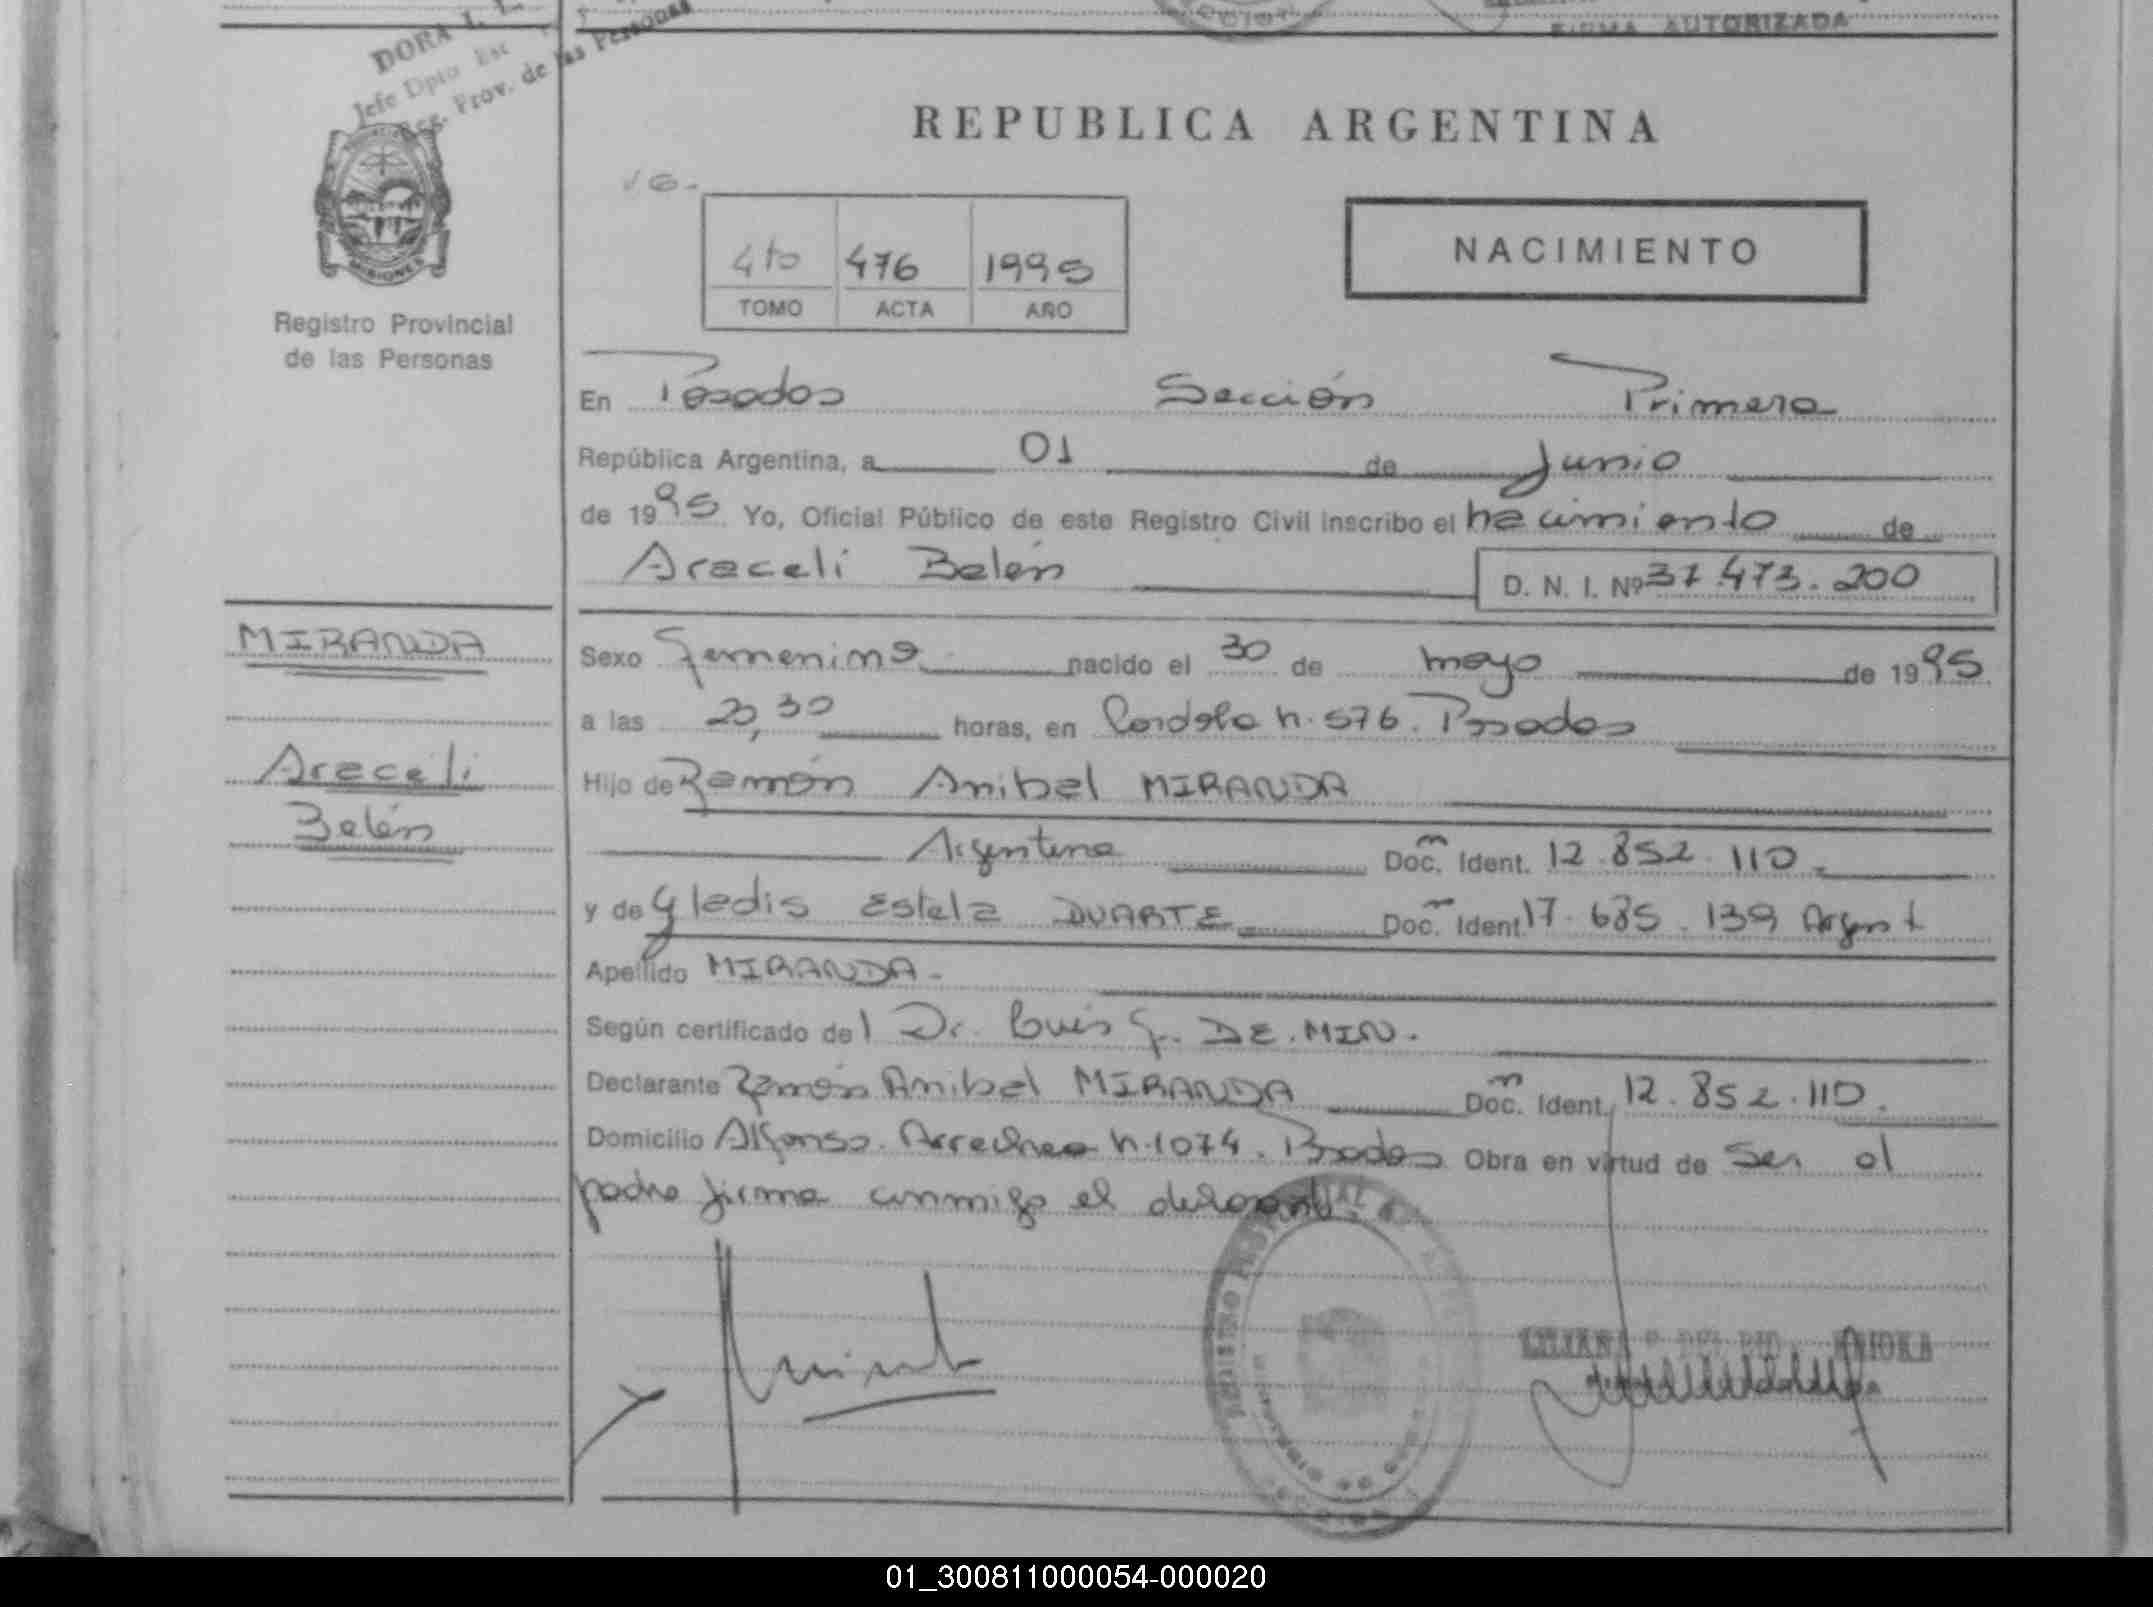 DORA
Jefe Dpto Esc
Reg. Prov. de las Personas
FIRMA AUTORIZADA
MISIONES
Registro Provincial
de las Personas
REPUBLICA ARGENTINA
4to 476 1995
TOMO ACTA AÑO
NACIMIENTO
En Posadas Sección Primera
República Argentina, a 01 de Junio
de 1995 Yo, Oficial Público de este Registro Civil inscribo el nacimiento de
Araceli Belén D. N. I. Nº 37.473.200
MIRANDA
Araceli
Belén
Sexo Femenino nacido el 30 de mayo de 1995
a las 20,30 horas, en Cordoba n. 576. Posadas
Hijo de Ramón Anibal MIRANDA
Argentina Doc. Ident. 12.852.110.
y de Gladis Estela DUARTE Doc. Ident. 17.685.139 Argent
Apellido MIRANDA.
Según certificado del Dr. Luis G. DE.MIN.
Declarante Ramón Anibal MIRANDA Doc. Ident. 12.852.110.
Domicilio Alfonso. Arrechea n.1074. Posadas Obra en virtud de Ser el
padre firma conmigo el
01_300811000054-000020